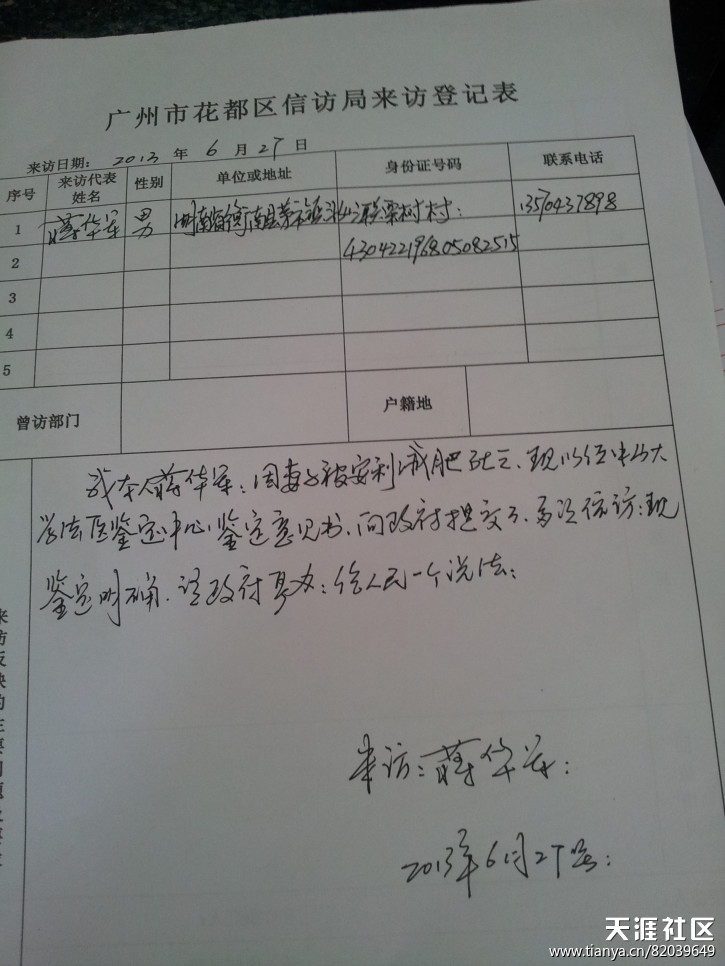 广州市花都区信访局来访登记表
来访日期: 2013 年 6 月 27 日
序号 来访代表姓名 性别 单位或地址 身份证号码 联系电话
1 蒋华军 男 湖南省衡南县茅市镇 栗树村: 430422196805082515 13570437898
2
3
4
5
曾访部门 户籍地
我本人蒋华军:因妻子被安利减肥死亡.现以经中山大
学法医鉴定中心鉴定意见书.向政府提交了.多次信访:现
鉴定明确.请政府督办:给人民一个说法:
来访反映的主要问题
来访:蒋华军:
2013年6月27号:
天涯社区
www.tianya.cn/82039649